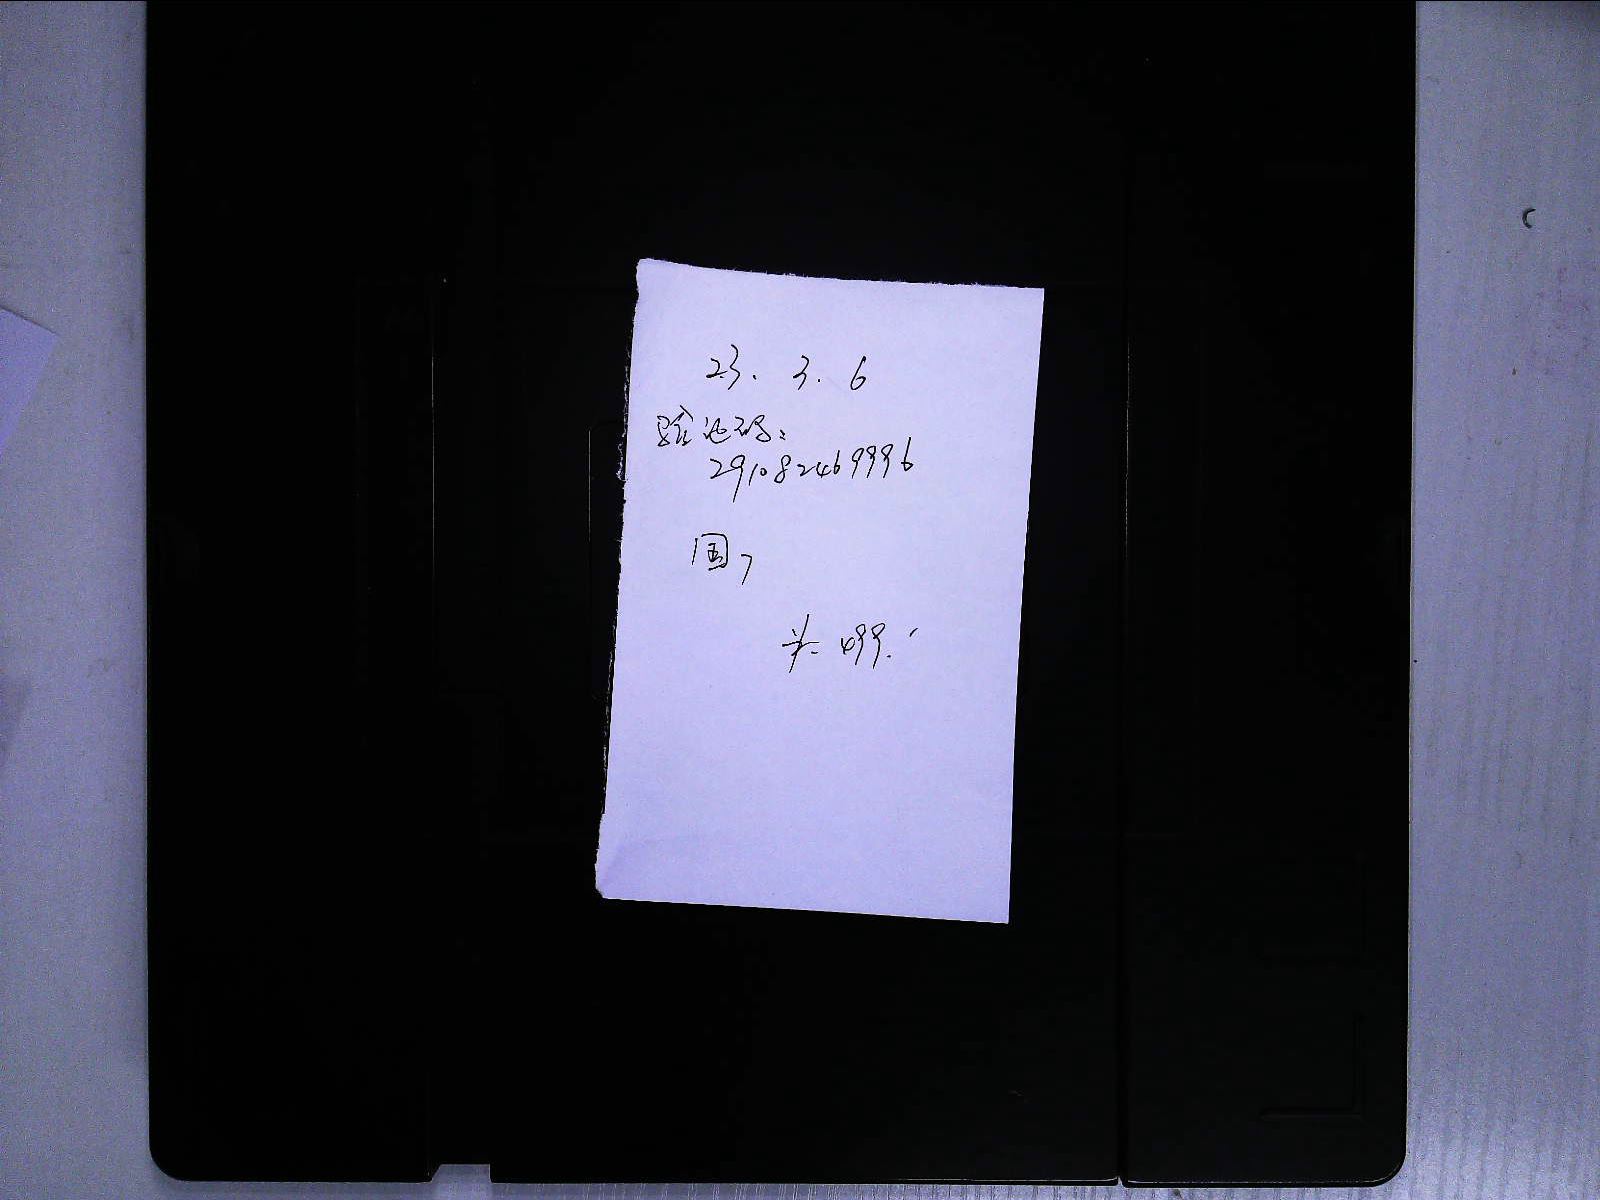 23. 3. 6
验证码:
291082469996
国7
关 499.